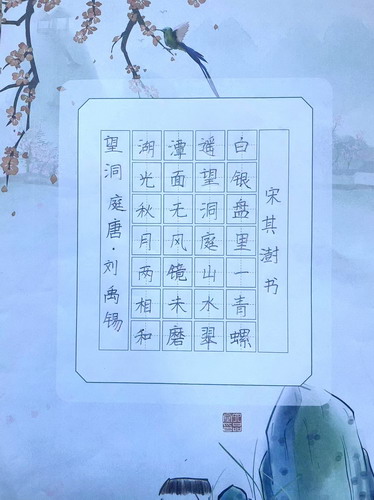 望洞庭唐·刘禹锡
湖光秋月两相和
潭面无风镜未磨
遥望洞庭山水翠
白银盘里一青螺
宋其澍书